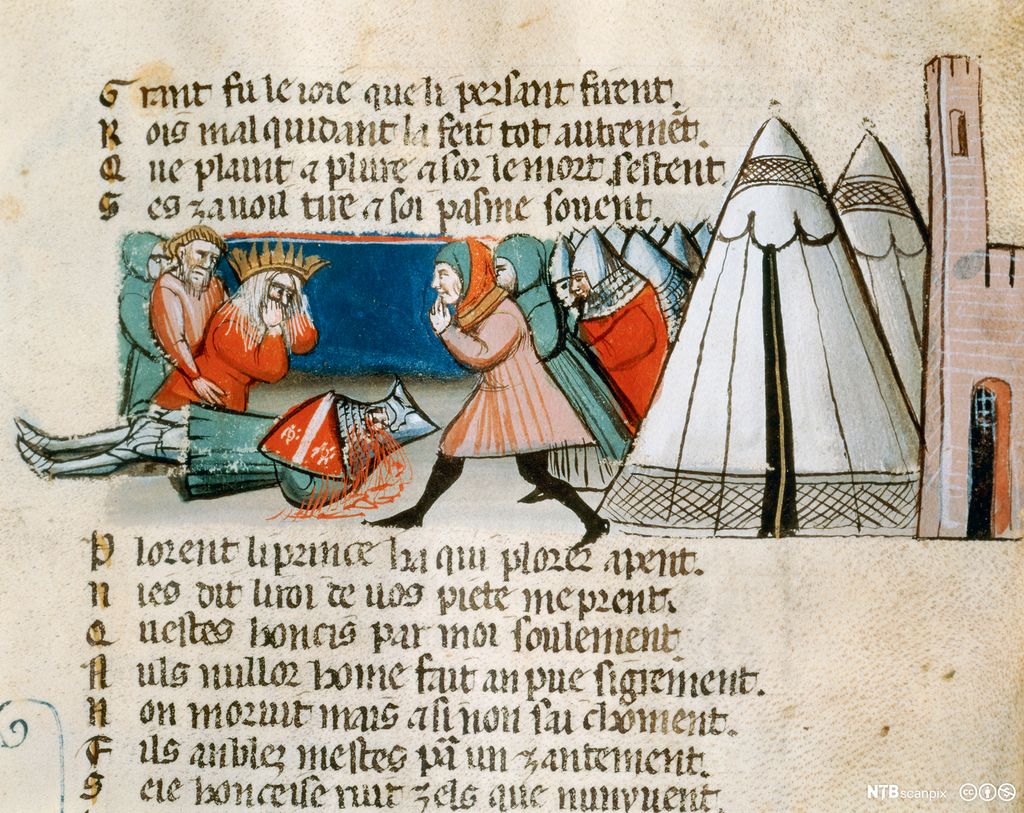 G rant fu le iore que li persant firent.
R ois mal quidant la feit tot autremēt.
Q ue plaint a plure a sor le mort sestent
S es auoil tire a soi pasme souent.
P lorent li prince ha qui plorer apent.
N ies dit li roi de uos piete me prent.
Q uestes honcis par moi soulement
A uls nullor home fait an pue sigrement.
N on moruit mais a si non sai choment.
F ils anblez mestes pā un zantement.
S eie honceise ruit zels que nunvuent.
NTB scanpix